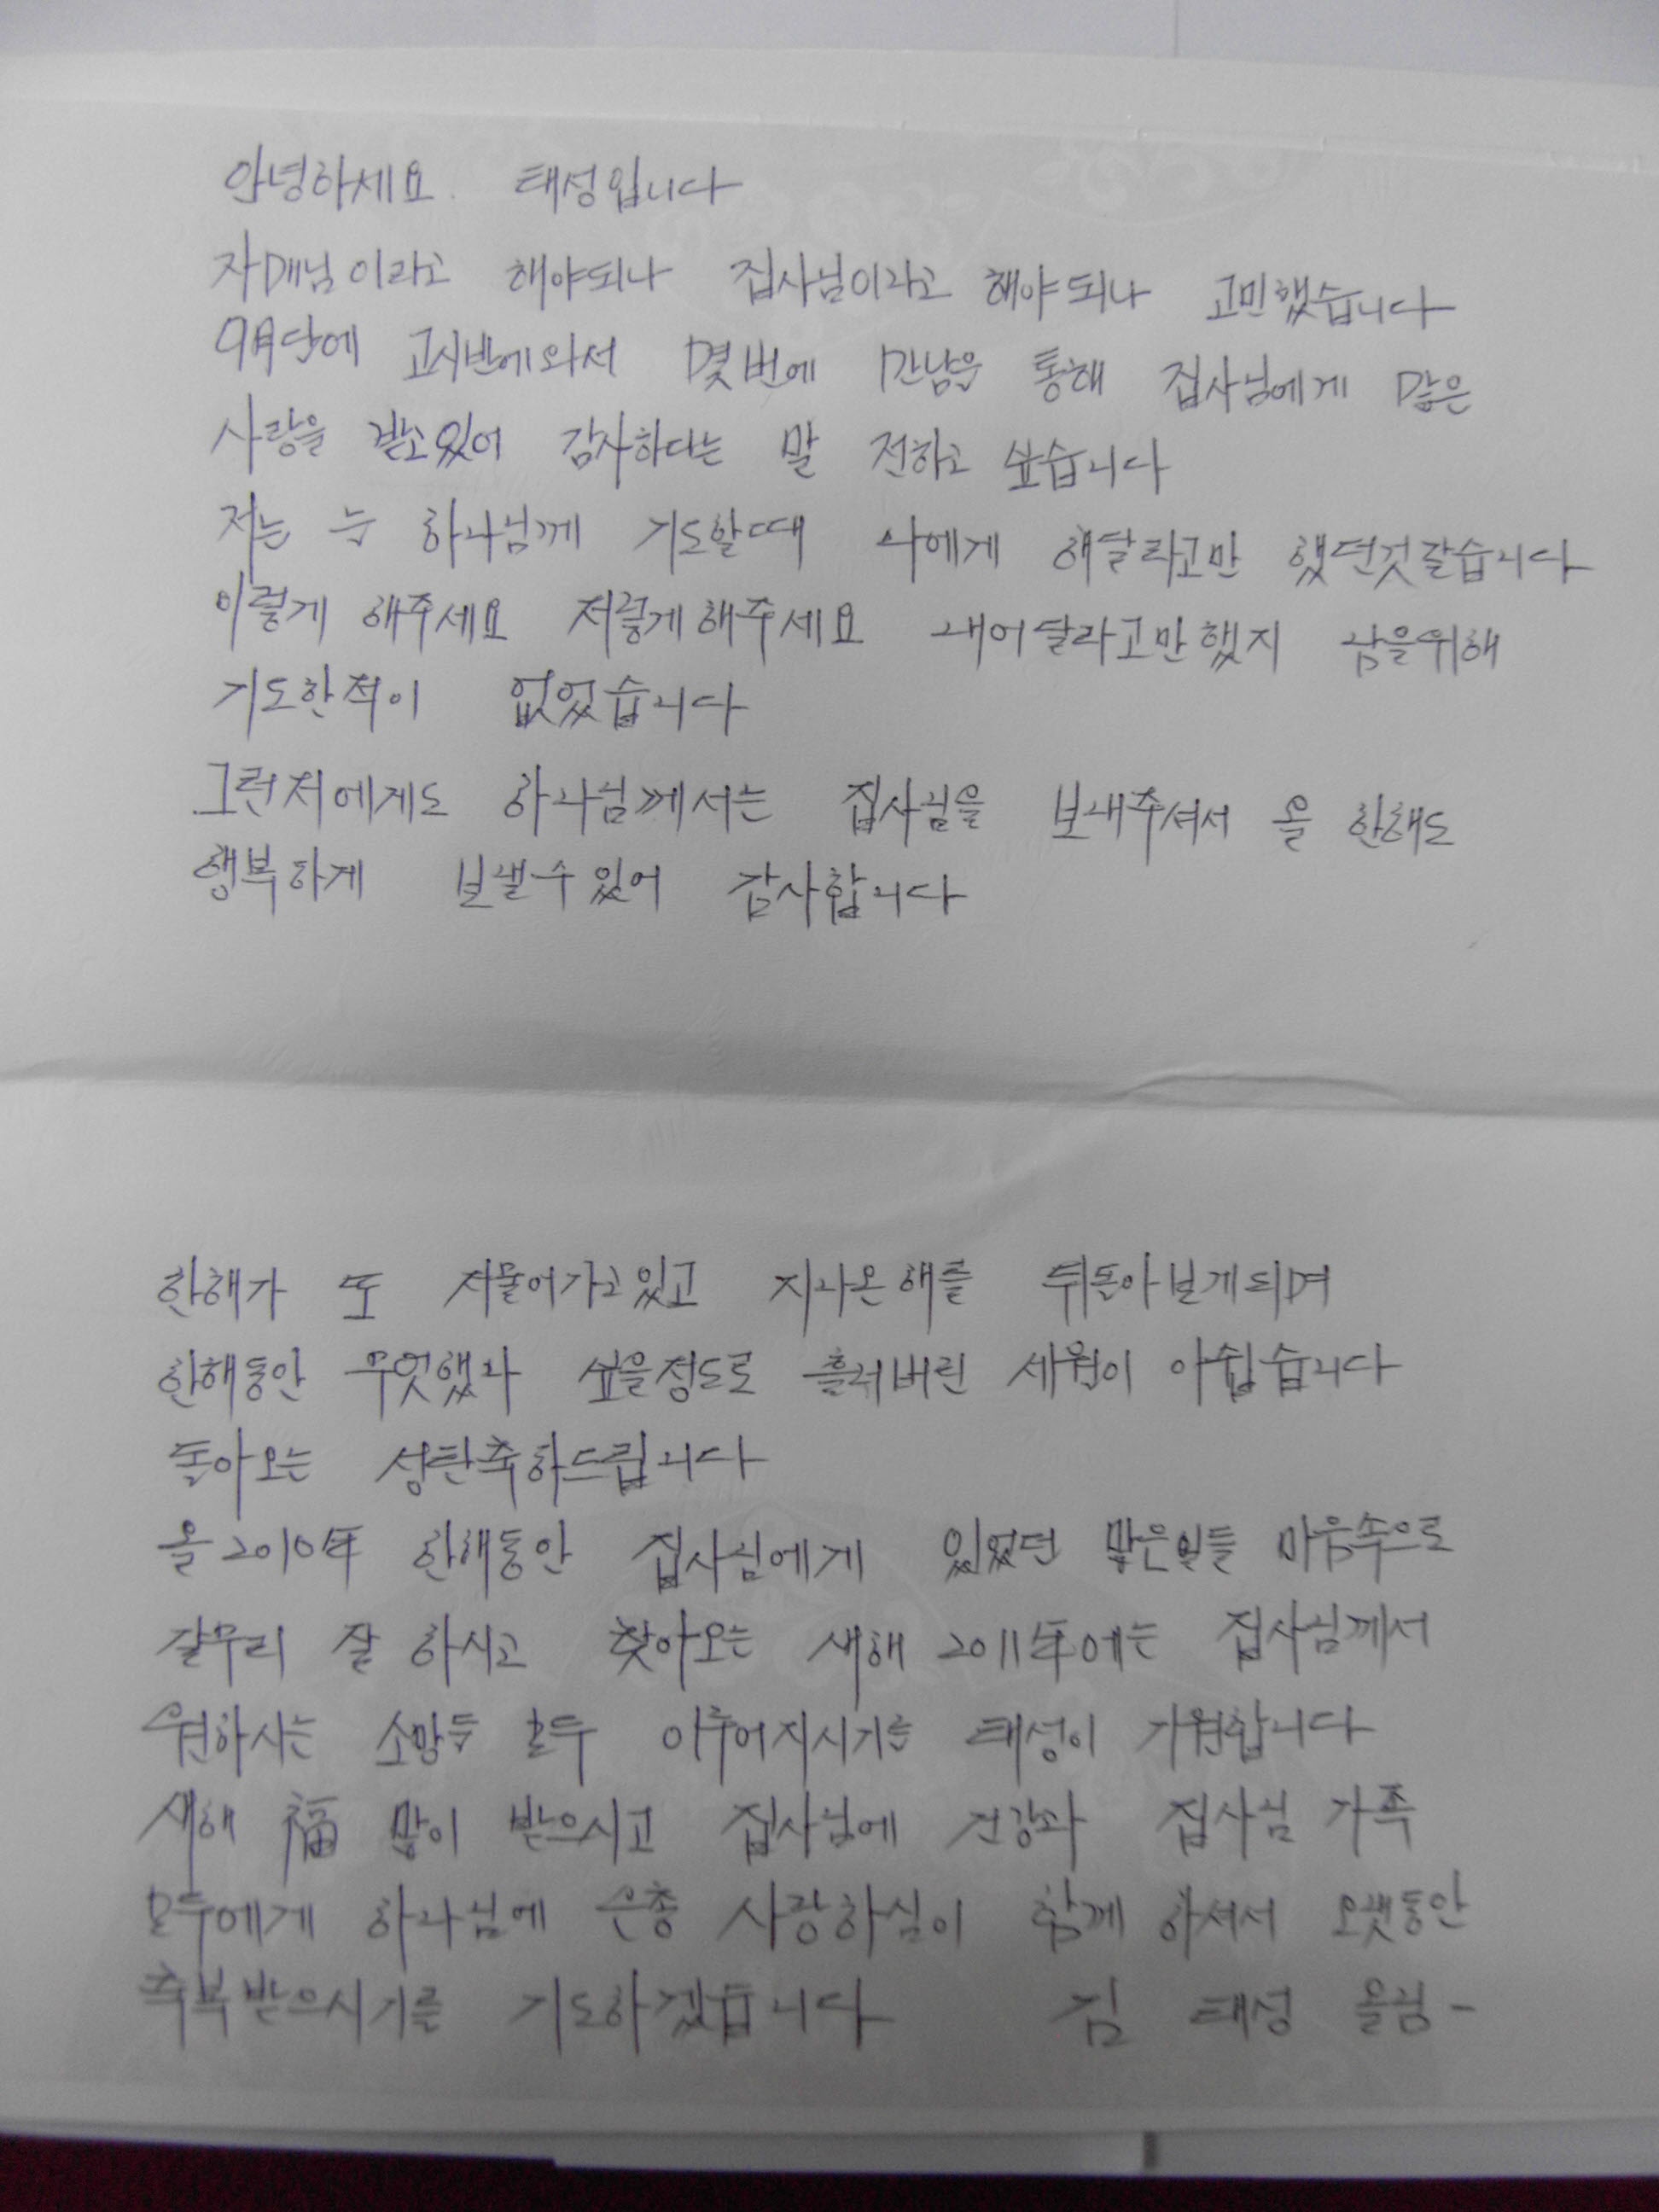 안녕하세요. 태성입니다
자매님이라고 해야되나 집사님이라고 해야되나 고민했습니다
9月달에 고시반에와서 몇번에 만남을 통해 집사님에게 많은
사랑을 받고있어 감사하다는 말 전하고 싶습니다
저는 늘 하나님께 기도할때 나에게 해달라고만 했던것같습니다
이렇게 해주세요 저렇게해주세요 내어달라고만했지 남을위해
기도한적이 없었습니다
그런저에게도 하나님께서는 집사님을 보내주셔서 올 한해도
행복하게 보낼수있어 감사합니다
한해가 또 저물어가고있고 지나온해를 뒤돌아보게되며
한해동안 무엇했나 싶을정도로 흘러버린 세월이 아쉽습니다
돌아오는 성탄축하드립니다
올2010年 한해동안 집사님에게 있었던 많은일들 마음속으로
갈무리 잘 하시고 찾아오는 새해 2011年에는 집사님께서
원하시는 소망들 모두 이루어지시기를 태성이 기원합니다
새해 福 많이 받으시고 집사님에 건강과 집사님 가족
모두에게 하나님에 은총 사랑하심이 함께 하셔서 오랫동안
축복받으시기를 기도하겠습니다 김 태성 올림-